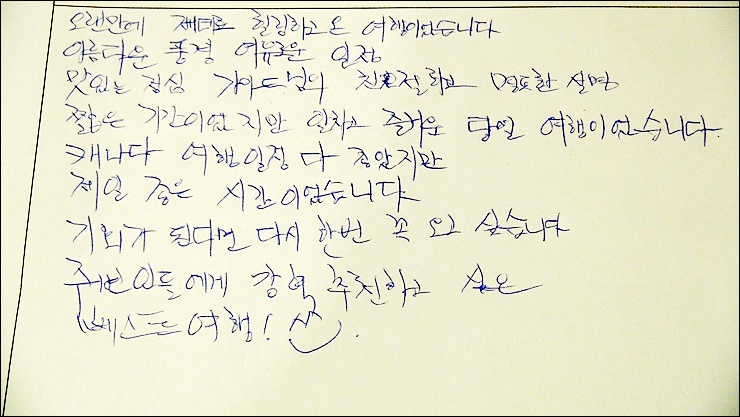 오랜만에 제대로 힐링하고 온 여행이었습니다
아름다운 풍경 여유로운 일정
맛있는 점심 가이드님의 친절하고 명료한 설명
짧은 기간이었지만 알차고 즐거운 당일 여행이었습니다.
캐나다 여행일정 다 좋았지만
제일 좋은 시간이었습니다.
기회가 된다면 다시 한번 꼭 오고 싶습니다
주변인들에게 강력 추천하고 싶은
베스트 여행!